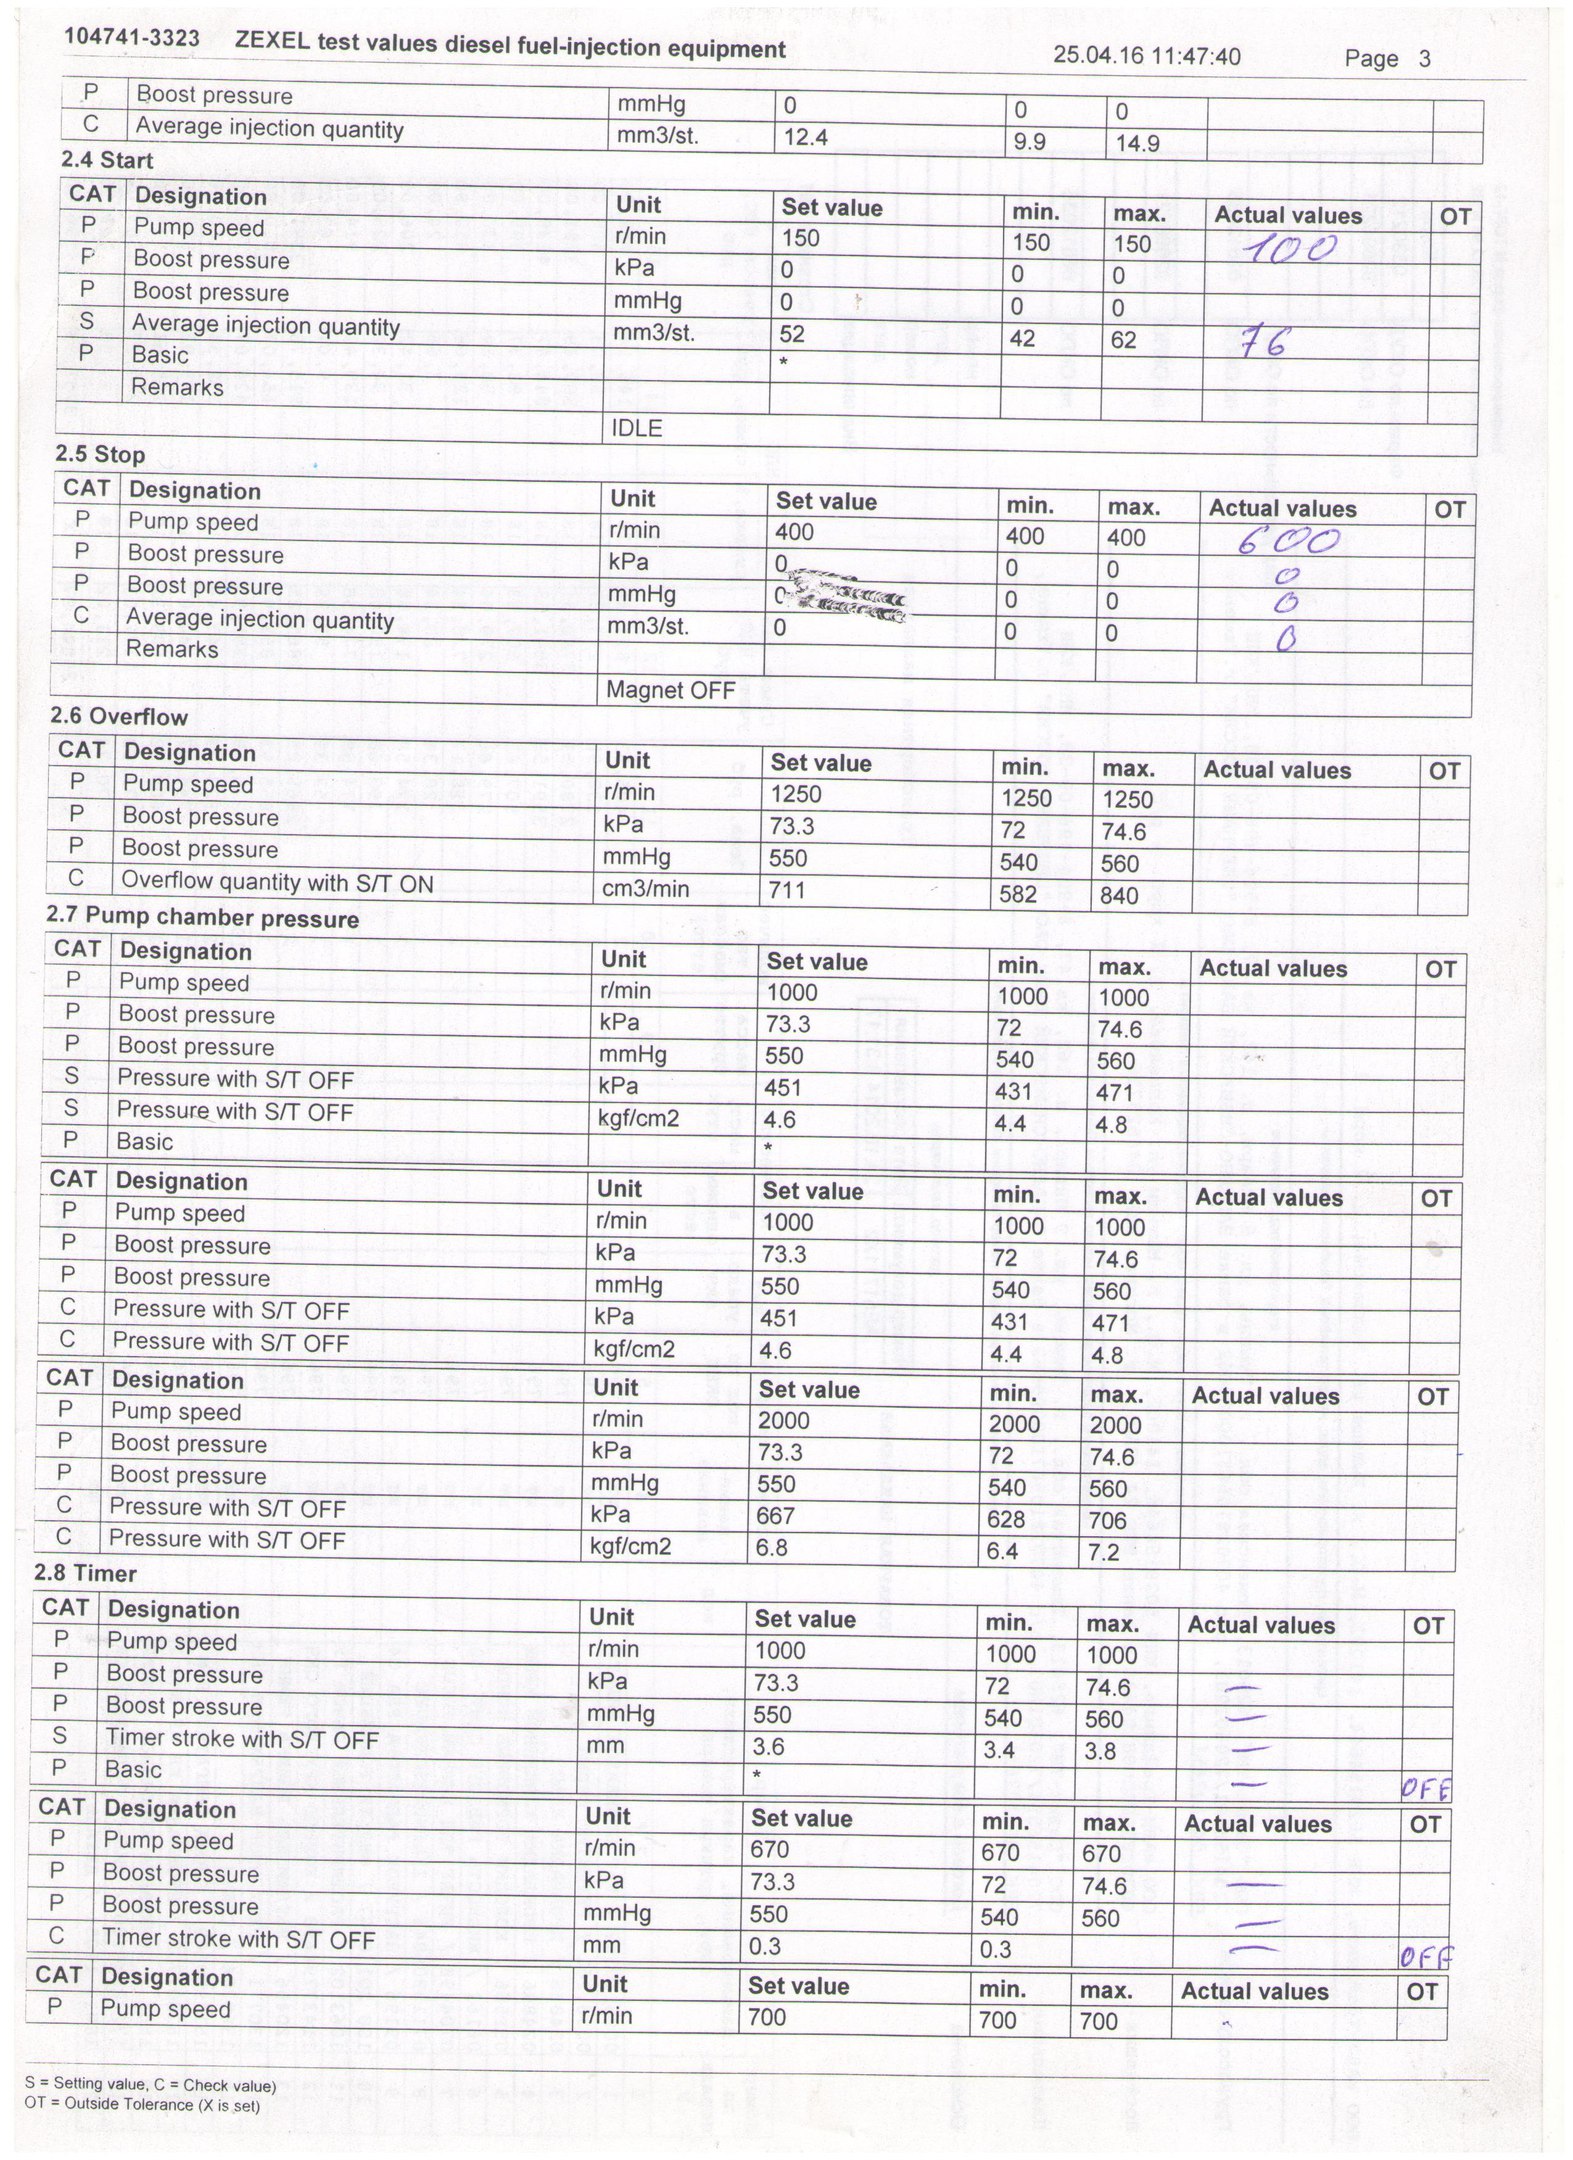 104741-3323 ZEXEL test values diesel fuel-injection equipment 25.04.16 11:47:40 Page 3
P Boost pressure mmHg 0 0 0
C Average injection quantity mm3/st. 12.4 9.9 14.9
2.4 Start
CAT Designation Unit Set value min. max. Actual values OT
P Pump speed r/min 150 150 150 100
P Boost pressure kPa 0 0 0
P Boost pressure mmHg 0 0 0
S Average injection quantity mm3/st. 52 42 62 76
P Basic *
Remarks
IDLE
2.5 Stop
CAT Designation Unit Set value min. max. Actual values OT
P Pump speed r/min 400 400 400 600
P Boost pressure kPa 0 0 0 0
P Boost pressure mmHg 0 0 0 0
C Average injection quantity mm3/st. 0 0 0 0
Remarks
Magnet OFF
2.6 Overflow
CAT Designation Unit Set value min. max. Actual values OT
P Pump speed r/min 1250 1250 1250
P Boost pressure kPa 73.3 72 74.6
P Boost pressure mmHg 550 540 560
C Overflow quantity with S/T ON cm3/min 711 582 840
2.7 Pump chamber pressure
CAT Designation Unit Set value min. max. Actual values OT
P Pump speed r/min 1000 1000 1000
P Boost pressure kPa 73.3 72 74.6
P Boost pressure mmHg 550 540 560
S Pressure with S/T OFF kPa 451 431 471
S Pressure with S/T OFF kgf/cm2 4.6 4.4 4.8
P Basic *
CAT Designation Unit Set value min. max. Actual values OT
P Pump speed r/min 1000 1000 1000
P Boost pressure kPa 73.3 72 74.6
P Boost pressure mmHg 550 540 560
C Pressure with S/T OFF kPa 451 431 471
C Pressure with S/T OFF kgf/cm2 4.6 4.4 4.8
CAT Designation Unit Set value min. max. Actual values OT
P Pump speed r/min 2000 2000 2000
P Boost pressure kPa 73.3 72 74.6
P Boost pressure mmHg 550 540 560
C Pressure with S/T OFF kPa 667 628 706
C Pressure with S/T OFF kgf/cm2 6.8 6.4 7.2
2.8 Timer
CAT Designation Unit Set value min. max. Actual values OT
P Pump speed r/min 1000 1000 1000
P Boost pressure kPa 73.3 72 74.6 —
P Boost pressure mmHg 550 540 560 —
S Timer stroke with S/T OFF mm 3.6 3.4 3.8 —
P Basic * — OFF
CAT Designation Unit Set value min. max. Actual values OT
P Pump speed r/min 670 670 670
P Boost pressure kPa 73.3 72 74.6 —
P Boost pressure mmHg 550 540 560 —
C Timer stroke with S/T OFF mm 0.3 0.3 — OFF
CAT Designation Unit Set value min. max. Actual values OT
P Pump speed r/min 700 700 700
S = Setting value, C = Check value)
OT = Outside Tolerance (X is set)